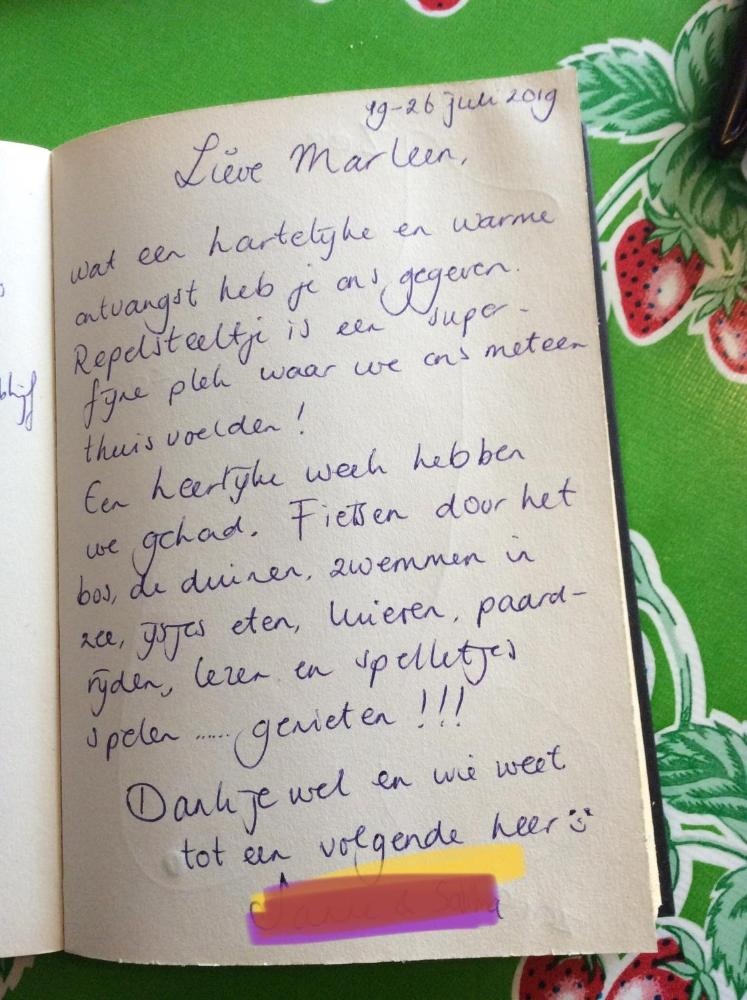 19-26 juli 2019
Lieve Marleen,
wat een hartelijke en warme
ontvangst heb je ons gegeven.
Repelsteeltje is een super-
fijne plek waar we ons meteen
thuis voelden!
Een heerlijke week hebben
we gehad. Fietsen door het
bos, de duinen, zwemmen in
zee, ijsjes eten, luieren, paard-
rijden, lezen en spelletjes
spelen ...... genieten !!!
Dankjewel en wie weet
tot een volgende keer